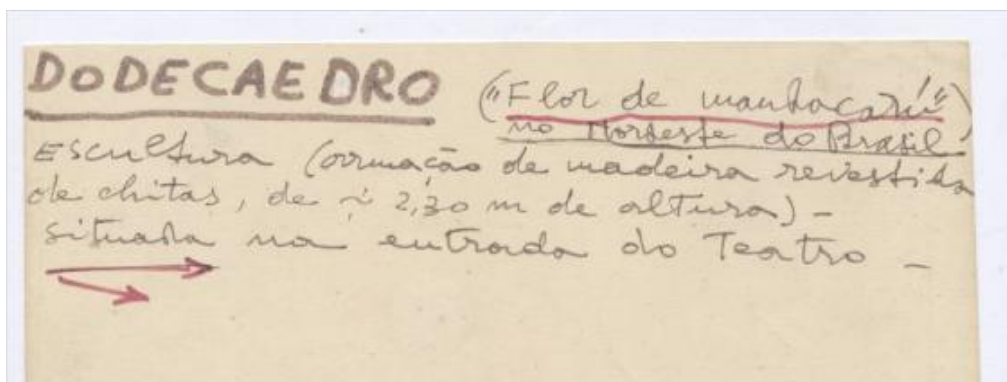 DODECAEDRO ("Flor de mandacarú"
no Nordeste do Brasil)
Escultura (armação de madeira revestida
de chitas, de ~ 2,30 m de altura) -
situada na entrada do Teatro -